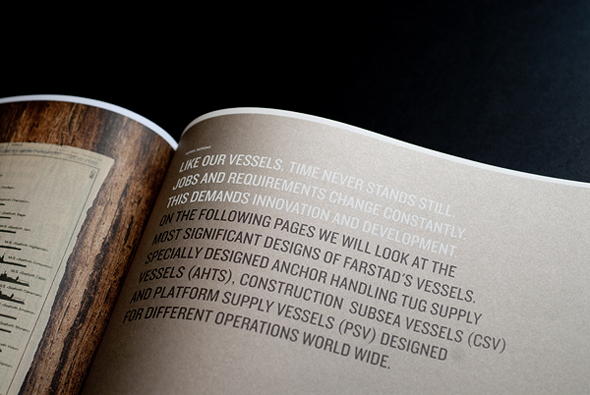 LIKE OUR VESSELS, TIME NEVER STANDS STILL.
JOBS AND REQUIREMENTS CHANGE CONSTANTLY.
THIS DEMANDS INNOVATION AND DEVELOPMENT.
ON THE FOLLOWING PAGES WE WILL LOOK AT THE
MOST SIGNIFICANT DESIGNS OF FARSTAD'S VESSELS.
SPECIALLY DESIGNED ANCHOR HANDLING TUG SUPPLY
VESSELS (AHTS), CONSTRUCTION SUBSEA VESSELS (CSV)
AND PLATFORM SUPPLY VESSELS (PSV) DESIGNED
FOR DIFFERENT OPERATIONS WORLD WIDE.